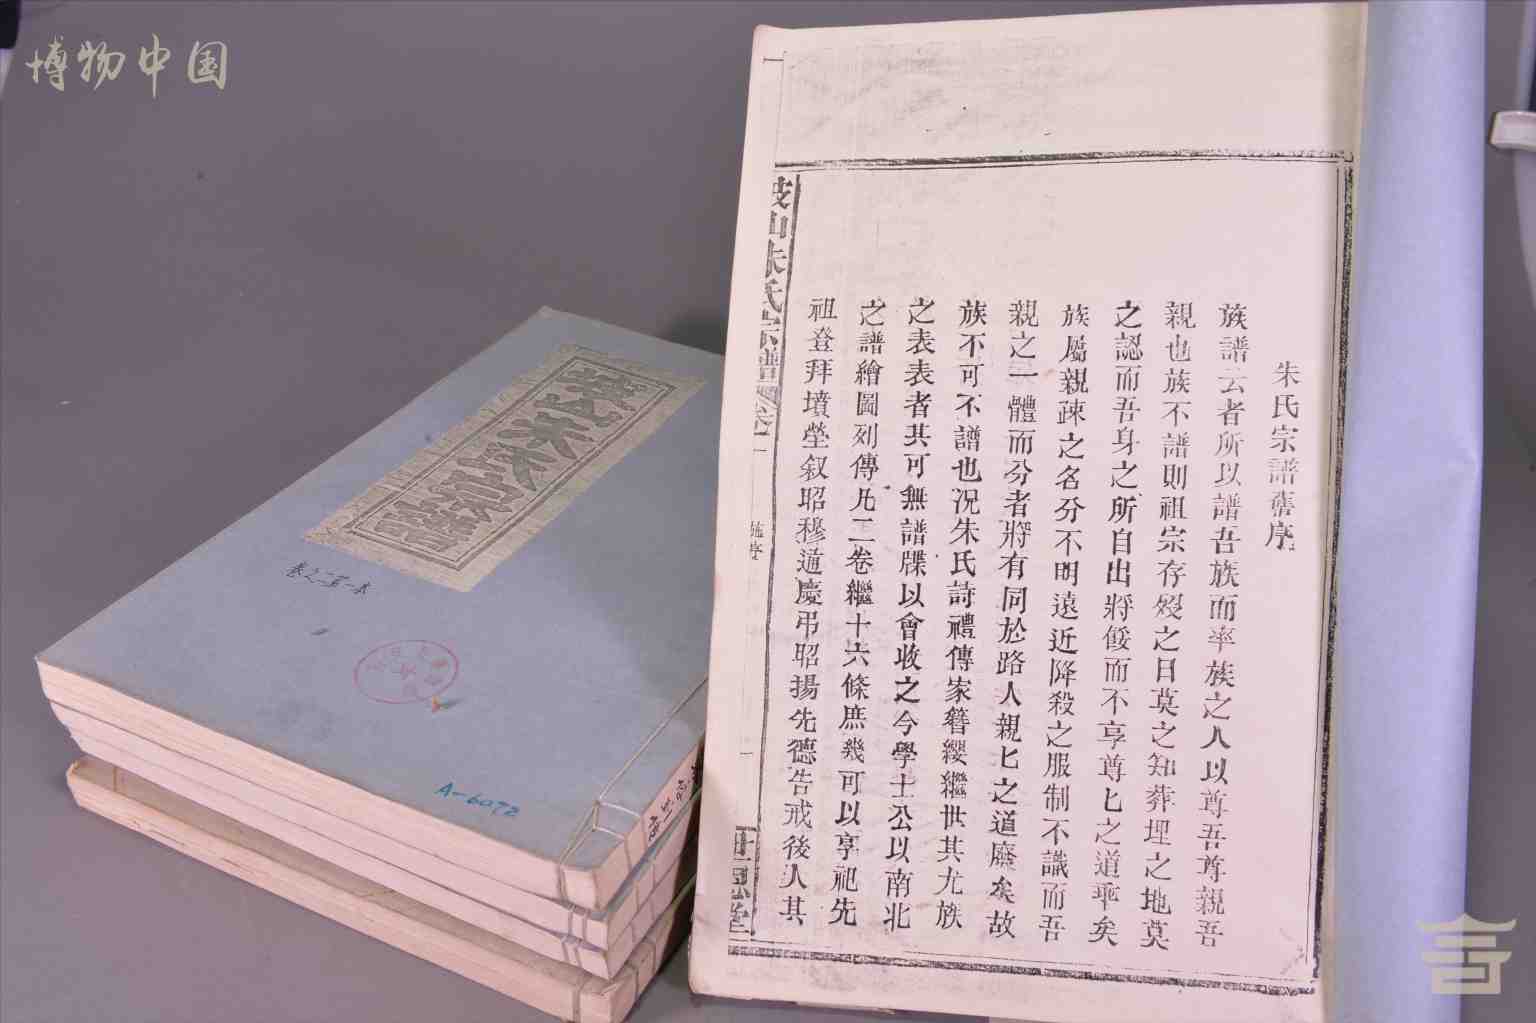 博物中国
朱氏宗譜舊序
族譜云者所以譜吾族而率族之人以尊吾尊親吾
親也族不譜則祖宗存歿之日莫之知葬埋之地莫
之認而吾身之所自出將餒而不享尊匕之道乖矣
族屬親疎之名分不明遠近降殺之服制不識而吾
親之一體而分者將有同於路人親匕之道廢矣故
族不可不譜也況朱氏詩禮傳家簪纓繼世其尤族
之表表者其可無譜牒以會收之今學士公以南北
之譜繪圖列傳凡二卷繼十六條庶幾可以享祀先
祖登拜墳塋叙昭穆道慶弔昭揚先德告戒後人其
坡山朱氏宗譜
卷一
舊序
一
世恩堂
坡山朱氏宗譜
卷之二第一本
A-6072